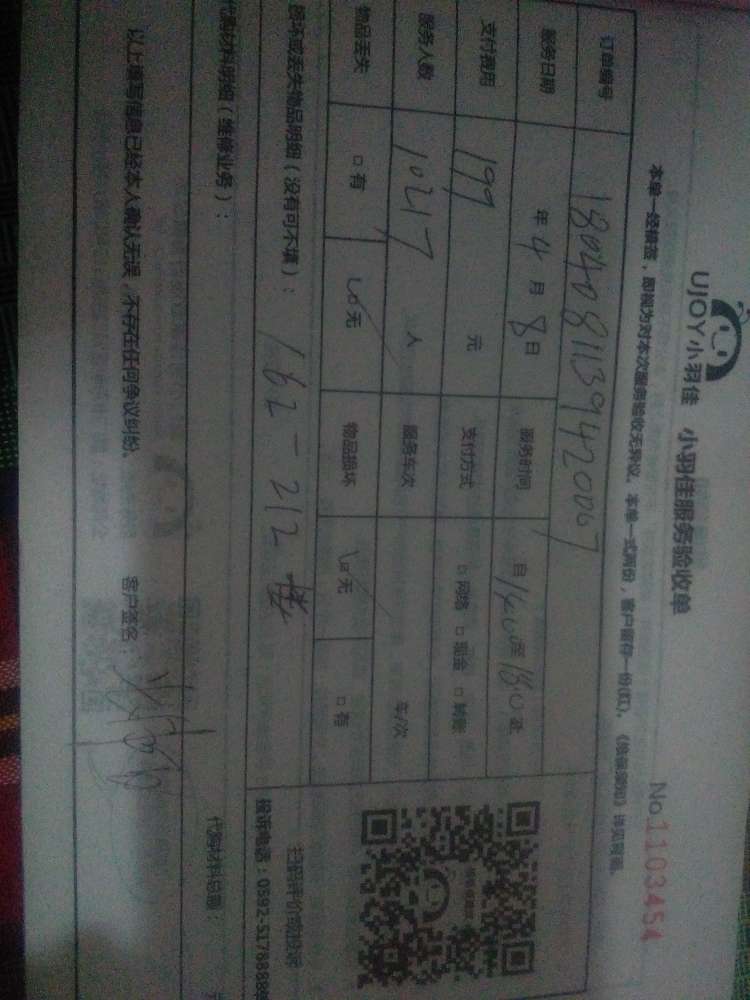 UJOY小羽佳 小羽佳服务验收单
No.1103454
本单一经横签，即视为对本次服务验收无异议。本单一式两份，客户留存一份(红)。
订单编号 180408113942006
服务日期 年4月8日 服务时间 自 14:00 至 18:0 止
支付费用 199 元 支付方式 □网络 □现金 □转账
服务人数 10217 人 服务车次 车/次
物品丢失 □有 □无 物品损坏 □无 □有
损坏或丢失物品明细（没有可不填）：162-212
代购材料明细（维修业务）： 代购材料总额：
以上填写信息已经本人确认无误，不存在任何争议纠纷。 客户签名：
投诉电话：0592-5178888